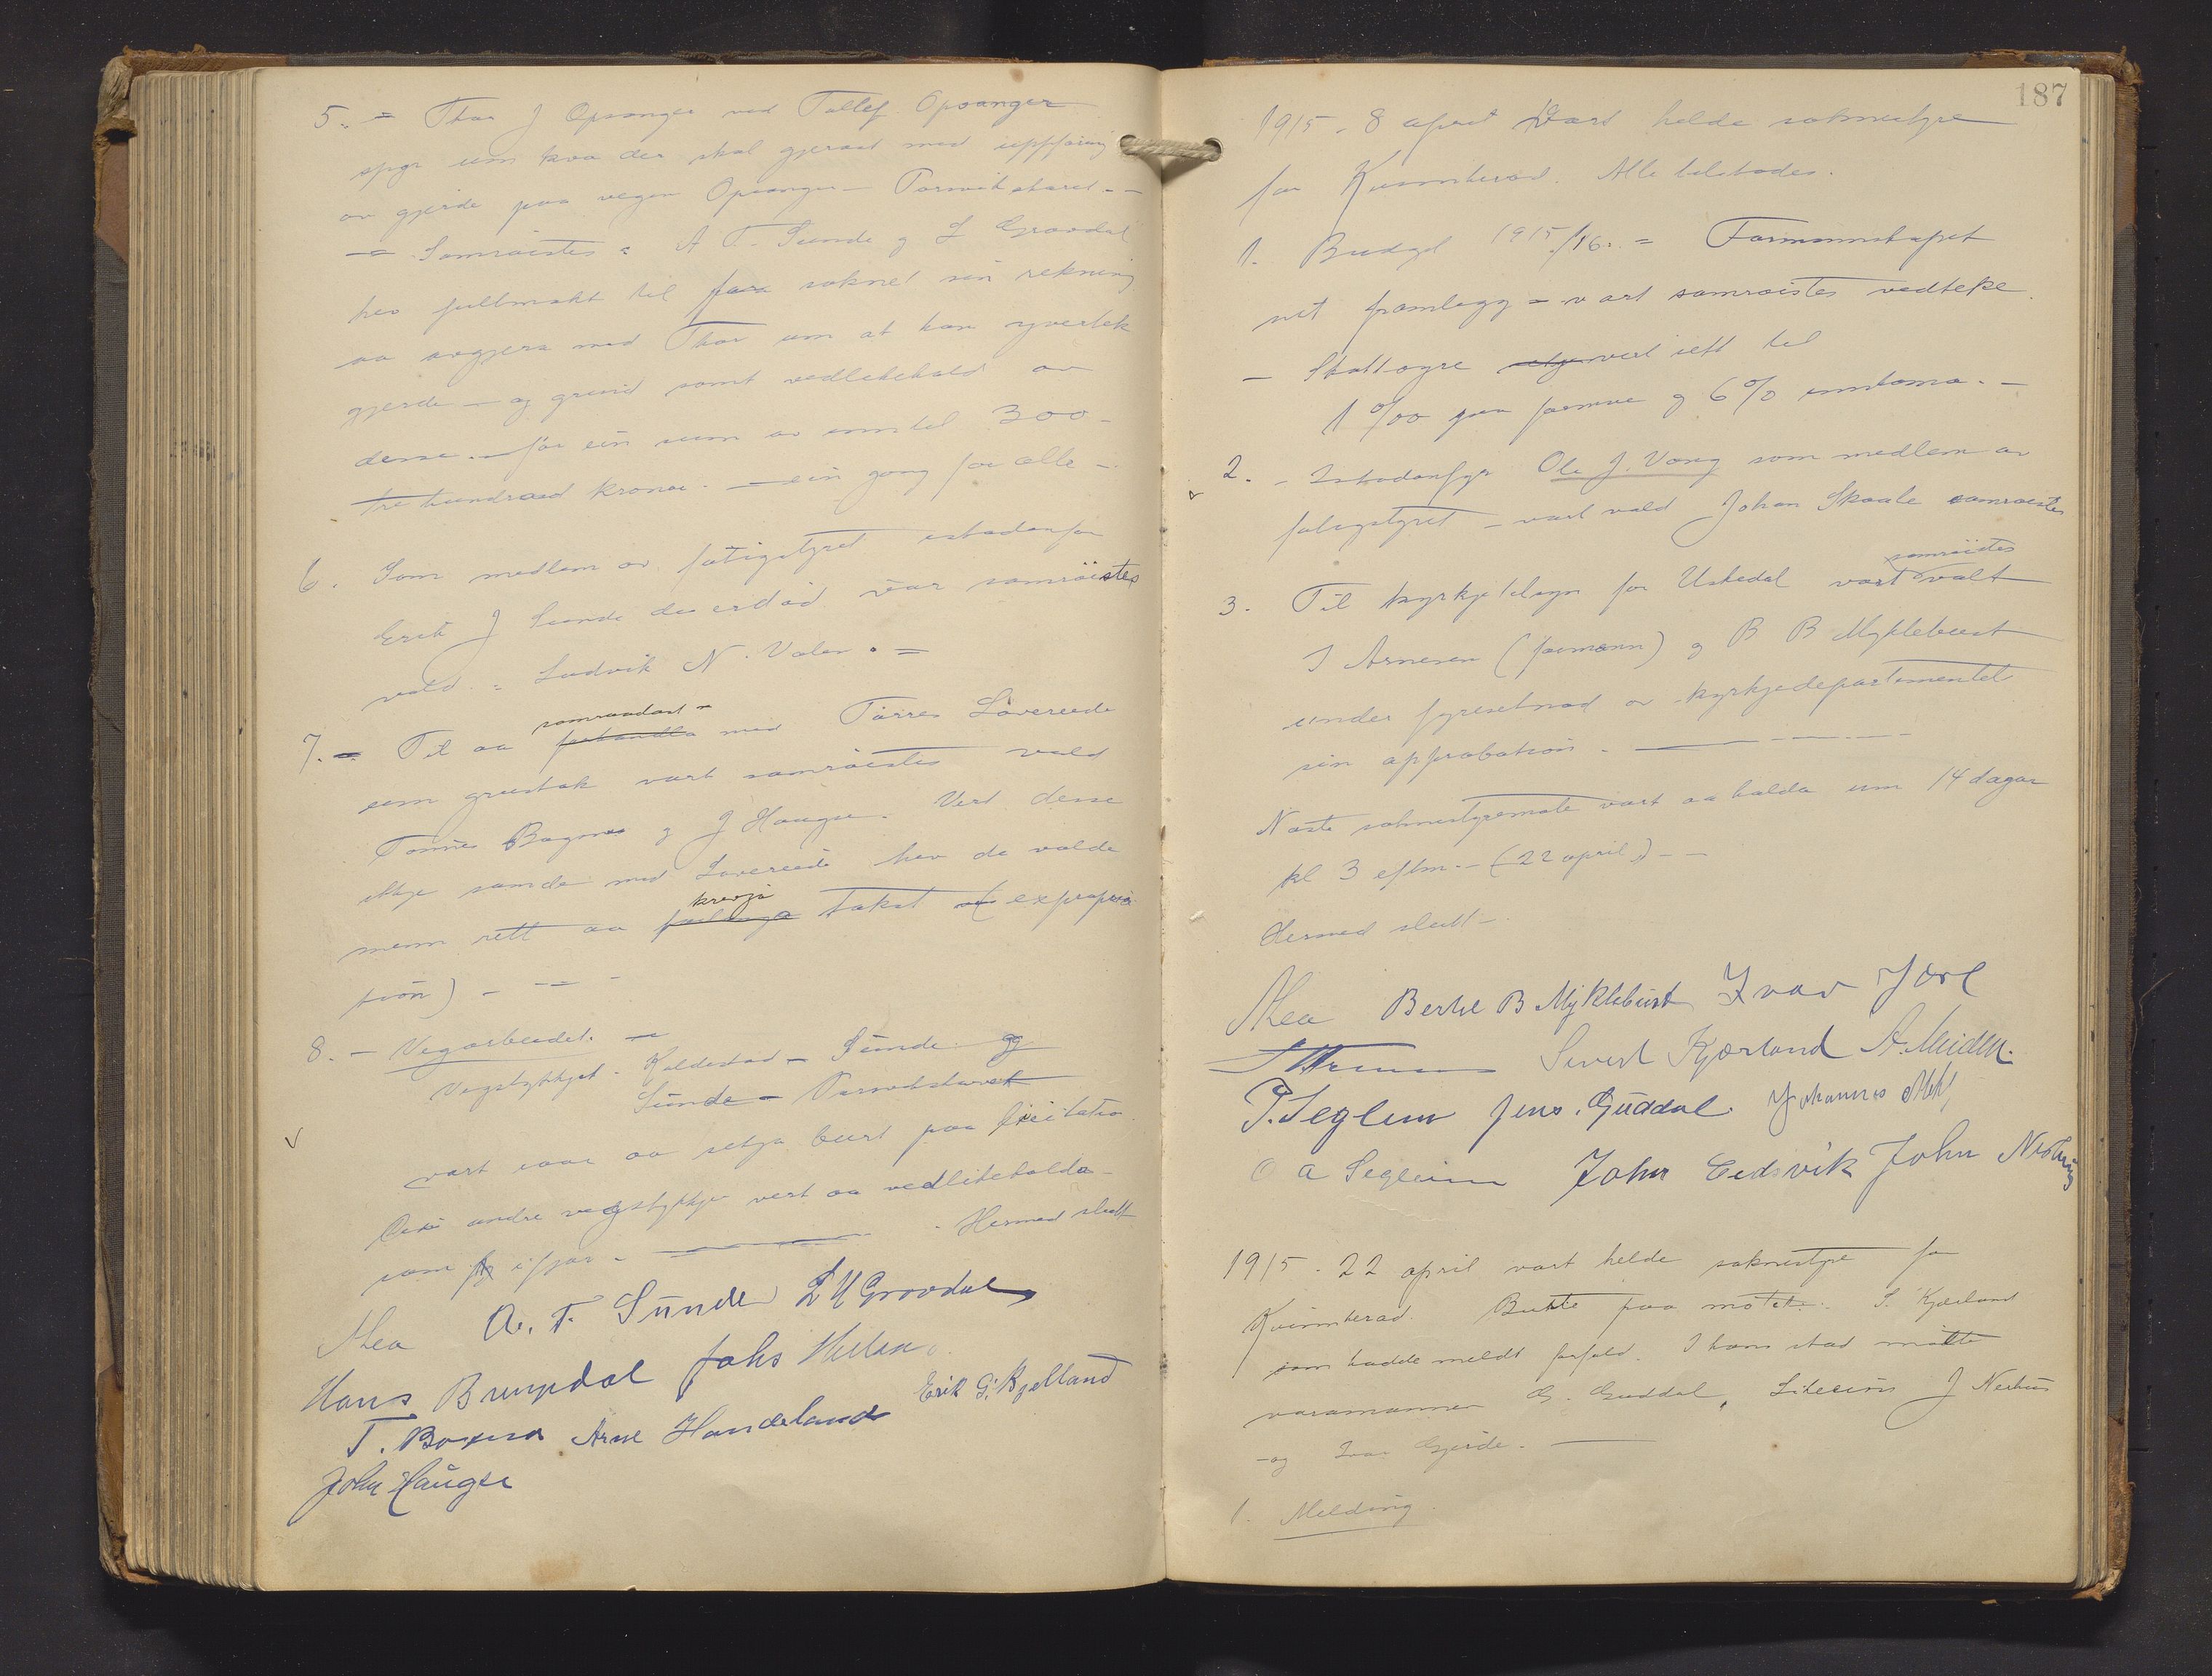 5. = Thor J Opsanger ved Tollef Opsanger
spyr um kva der skal gjerast med uppföring
av gjerde paa vegen Opsanger - Porsvikskaret. -
-= Samröistes: A T. Sunde og L Grovdal
hev fullmakt til for soknet sin rekning
aa avgjera med Thor um at han yvertek
gjerde - og grunn samt vedlikehald av
desse. - för ein sum av inntil 300 -
trehundrad kronor. - ein gong for alle -
6. Som medlem av fatigstyret istadenfor
Erik J Sunde der er död var samröistes
vald = Ludvik N. Valen. =
7. = Til aa forhandla samraadast = med Törres Lövereide
um grustak vart samröistes vald
Tönnes Bogsnes og J Hauge. Vert desse
ikkje samde med Lövereide hev de valde
menn rett aa forlanga krevja takst (expropria
sion) - -= -
8. - Vegarbeidet. -
Vegstykkjet - Koldestad - Sunde og
Sunde - Porsvikskaret
vart iaar aa setja burt paa licitation.
Dei andre vegstykkje vert aa vedlikehalda -
som ifjor. - Hermed slutt
A. T. Sunde L H Grovdal
Hans Bringedal Johs Hilen
T. Bogsnes Arne Handeland Erik G. Kjelland
John Hauge
187
1915. 8 april Vart helde soknestyre
for Kvinnherad. Alle tilstades.
1. Budget 1915/16. = Formannskapet
sit framlegg = vart samröistes vedteke.
- Skattøyre vert sett til
1 ‰ paa formue og 6% inntoma. -
2. - Istadenfyr Ole J. Vaag som medlem av
fatigstyret - vart vald Johan Skaale samröistes
3. Til kyrkjetilsyn for Uskedal vart samröistes valt
I Arnesen (formann) og B B Myklebust
under fyresetnad av kyrkjedepartementet
sin approbation. -
Næste soknestyremöte vart aa halda um 14 dagar
kl 3 eftm. - (22 april) - -
Hermed slutt -
Bertel B Myklebust Ivar Jarl
Sivert Kjærland A. Meidell.
P. Seglem Jens Guddal Johannes Mehl
O A Segleim John Eidsvik John Nerhus
1915. 22 april vart helde soknestyre for
Kvinnherad. Burte paa mötet: S. Kjærland
som hadde meldt forfald. I hans stad mötte
varamannen G. Guddal, Likesom J Nerhus
- og Ivar Gjerde. -
1. Melding.